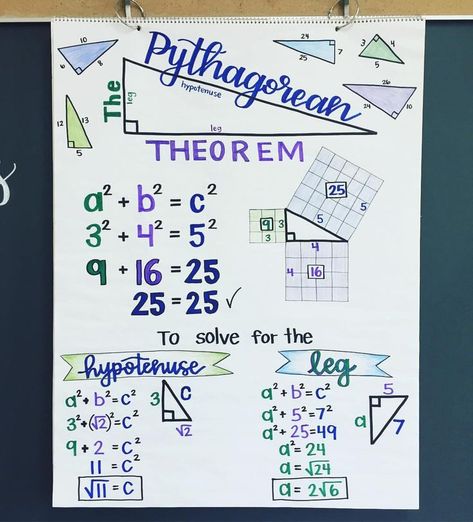 10
6
8
24
7
25
3
4
5
26
24
10
12
13
5
The
Pythagorean
leg
hypotenuse
leg
THEOREM
a² + b² = c²
3² + 4² = 5²
9 + 16 = 25
25 = 25 ✓
25
5
5
9
3
3
4
4
16
To solve for the
hypotenuse
a² + b² = c²
3² + (√2)² = c²
9 + 2 = c²
11 = c²
√11 = c
3
c
√2
leg
a² + b² = c²
a² + 5² = 7²
a² + 25 = 49
a² = 24
a = √24
a = 2√6
5
a
7